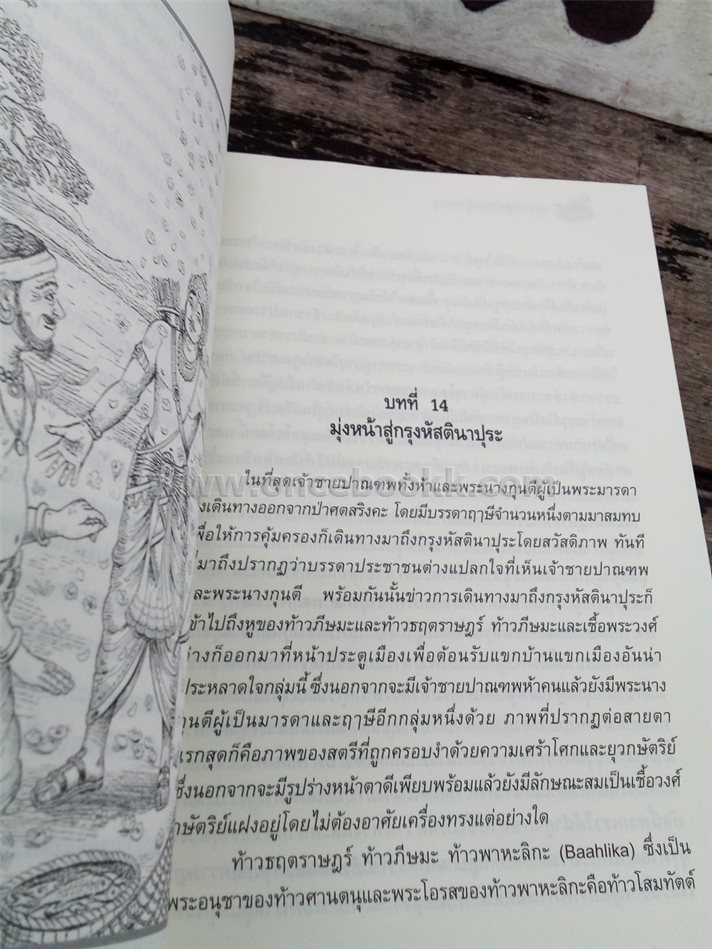 บทที่ 14
มุ่งหน้าสู่กรุงหัสตินาปุระ
ในที่สุดเจ้าชายปาณฑพทั้งห้าและพระนางกุนตีผู้เป็นพระมารดา
เดินทางออกจากป่าศตสริงคะ โดยมีบรรดาฤๅษีจำนวนหนึ่งตามมาสมทบ
เพื่อให้การคุ้มครองก็เดินทางมาถึงกรุงหัสตินาปุระโดยสวัสดิภาพ ทันที
มาถึงปรากฏว่าบรรดาประชาชนต่างแปลกใจที่เห็นเจ้าชายปาณฑพ
และพระนางกุนตี พร้อมกันนั้นข่าวการเดินทางมาถึงกรุงหัสตินาปุระก็
เข้าไปถึงหูของท้าวภีษมะและท้าวธฤตราษฎร์ ท้าวภีษมะและเชื้อพระวงศ์
ต่างก็ออกมาที่หน้าประตูเมืองเพื่อต้อนรับแขกบ้านแขกเมืองอันน่า
ประหลาดใจกลุ่มนี้ ซึ่งนอกจากจะมีเจ้าชายปาณฑพห้าคนแล้วยังมีพระนาง
กุนตีผู้เป็นมารดาและฤๅษีอีกกลุ่มหนึ่งด้วย ภาพที่ปรากฏต่อสายตา
แรกสุดก็คือภาพของสตรีที่ถูกครอบงำด้วยความเศร้าโศกและยุวกษัตริย์
ซึ่งนอกจากจะมีรูปร่างหน้าตาดีเพียบพร้อมแล้วยังมีลักษณะสมเป็นเชื้อวงศ์
กษัตริย์แฝงอยู่โดยไม่ต้องอาศัยเครื่องทรงแต่อย่างใด
ท้าวธฤตราษฎร์ ท้าวภีษมะ ท้าวพาหะลิกะ (Baahlika) ซึ่งเป็น
พระอนุชาของท้าวศานตนุและพระโอรสของท้าวพาหะลิกะคือท้าวโสมทัตต์